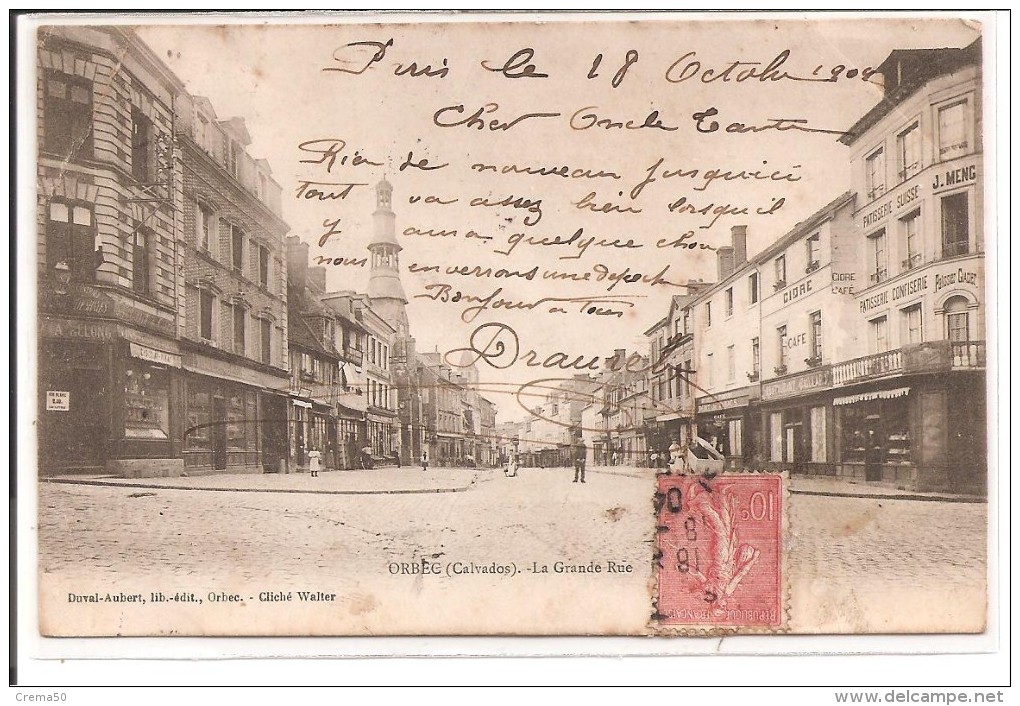 Paris le 18 Octobre 1904
Cher Oncle Tante
Rien de nouveau jusqu'ici
tout va assez bien lorsqu'il
y aura quelque chose
nous enverrons une depech
Bonjour a Tous
J. MENG
PATISSERIE SUISSE
PATISSERIE CONFISERIE
CIDRE
CAFÉ
CIDRE
CAFÉ
10c
REPUBLIQUE FRANÇAISE
ORBEC (Calvados). - La Grande Rue
Duval-Aubert, lib.-édit., Orbec. - Cliché Walter
Crema50
www.delcampe.net